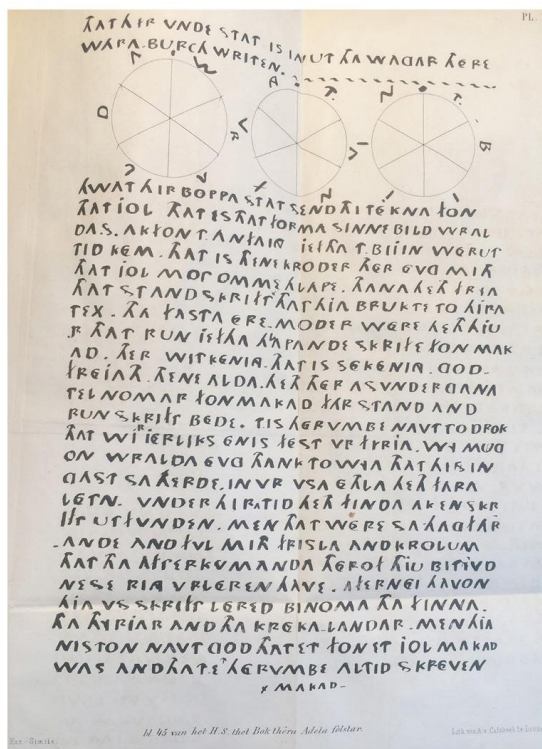 THAT HIR VNDE STAT IS IN UT THA WAGAR THERE
WARA-BURCH WRITEN.
HWAT HIR BOPPA STAT SEND THI TEKNA FON
THAT IOL. THAT IS THAT FORMA SINNEBILD WRAL
DAS. AK FON T. ANFANG IEFTHA T. BIJIN WERUT
TID KEM. THAT IS THENE KRODER THER EVG MITH
THAT IOL MOT OMME HLAPE. THANA HETH FRYA
THAT STANDSKRIFT THAT HIA BRUKTE TO HIRA
TEX. THA FASTA ERE-MODER WERE HETH HIU
.R THAT RUN IEFTHA HLAPANDE SKRIFT FON MAK
AD. THER WITKENING. THAT IS SEKENING. GOD-
FREIATH. THENE ALDA. HETH THER ASUNDERGANA
TELNOMAR FON MAKAD FAR STAND AND
RUNSKRIFT BEDE. T IS THERVMBE NAVT TO DROK
THAT WI.R IERLIKS ENIS FEST VR FYRIA. WY MUG
ON WRALDA EVG THANK TO WYA THAT HI SIN
GAST SA HERDE. IN VR VSA ETHLA HETH FARA
LETN. VNDER HIRA TID HETH FINDA AK EN SKR
IFT UTFUNDEN. MEN THAT WERE SA HAGFAR
-ANDE AND FUL MITH FRISLA AND KROLUM
THAT THA AFTERKUMANDA THEROF THIU BITIVD
NESE RING VRLEREN HAVE. AFTERNEI HAVON
HIA VS SKRIFT LERED BINOMA THA FINNA.
THA THYRIAR AND THA KREKALANDAR. MEN HIA
NISTON NAVT GOD THAT ET FON ET IOL MAKAD
WAS AND THAT ET THERUMBE ALTID SKREVEN
MAKAD-
bl. 45 van het H.S. thet Bok thêra Adela folstar.
Fac-Simile.
PL.